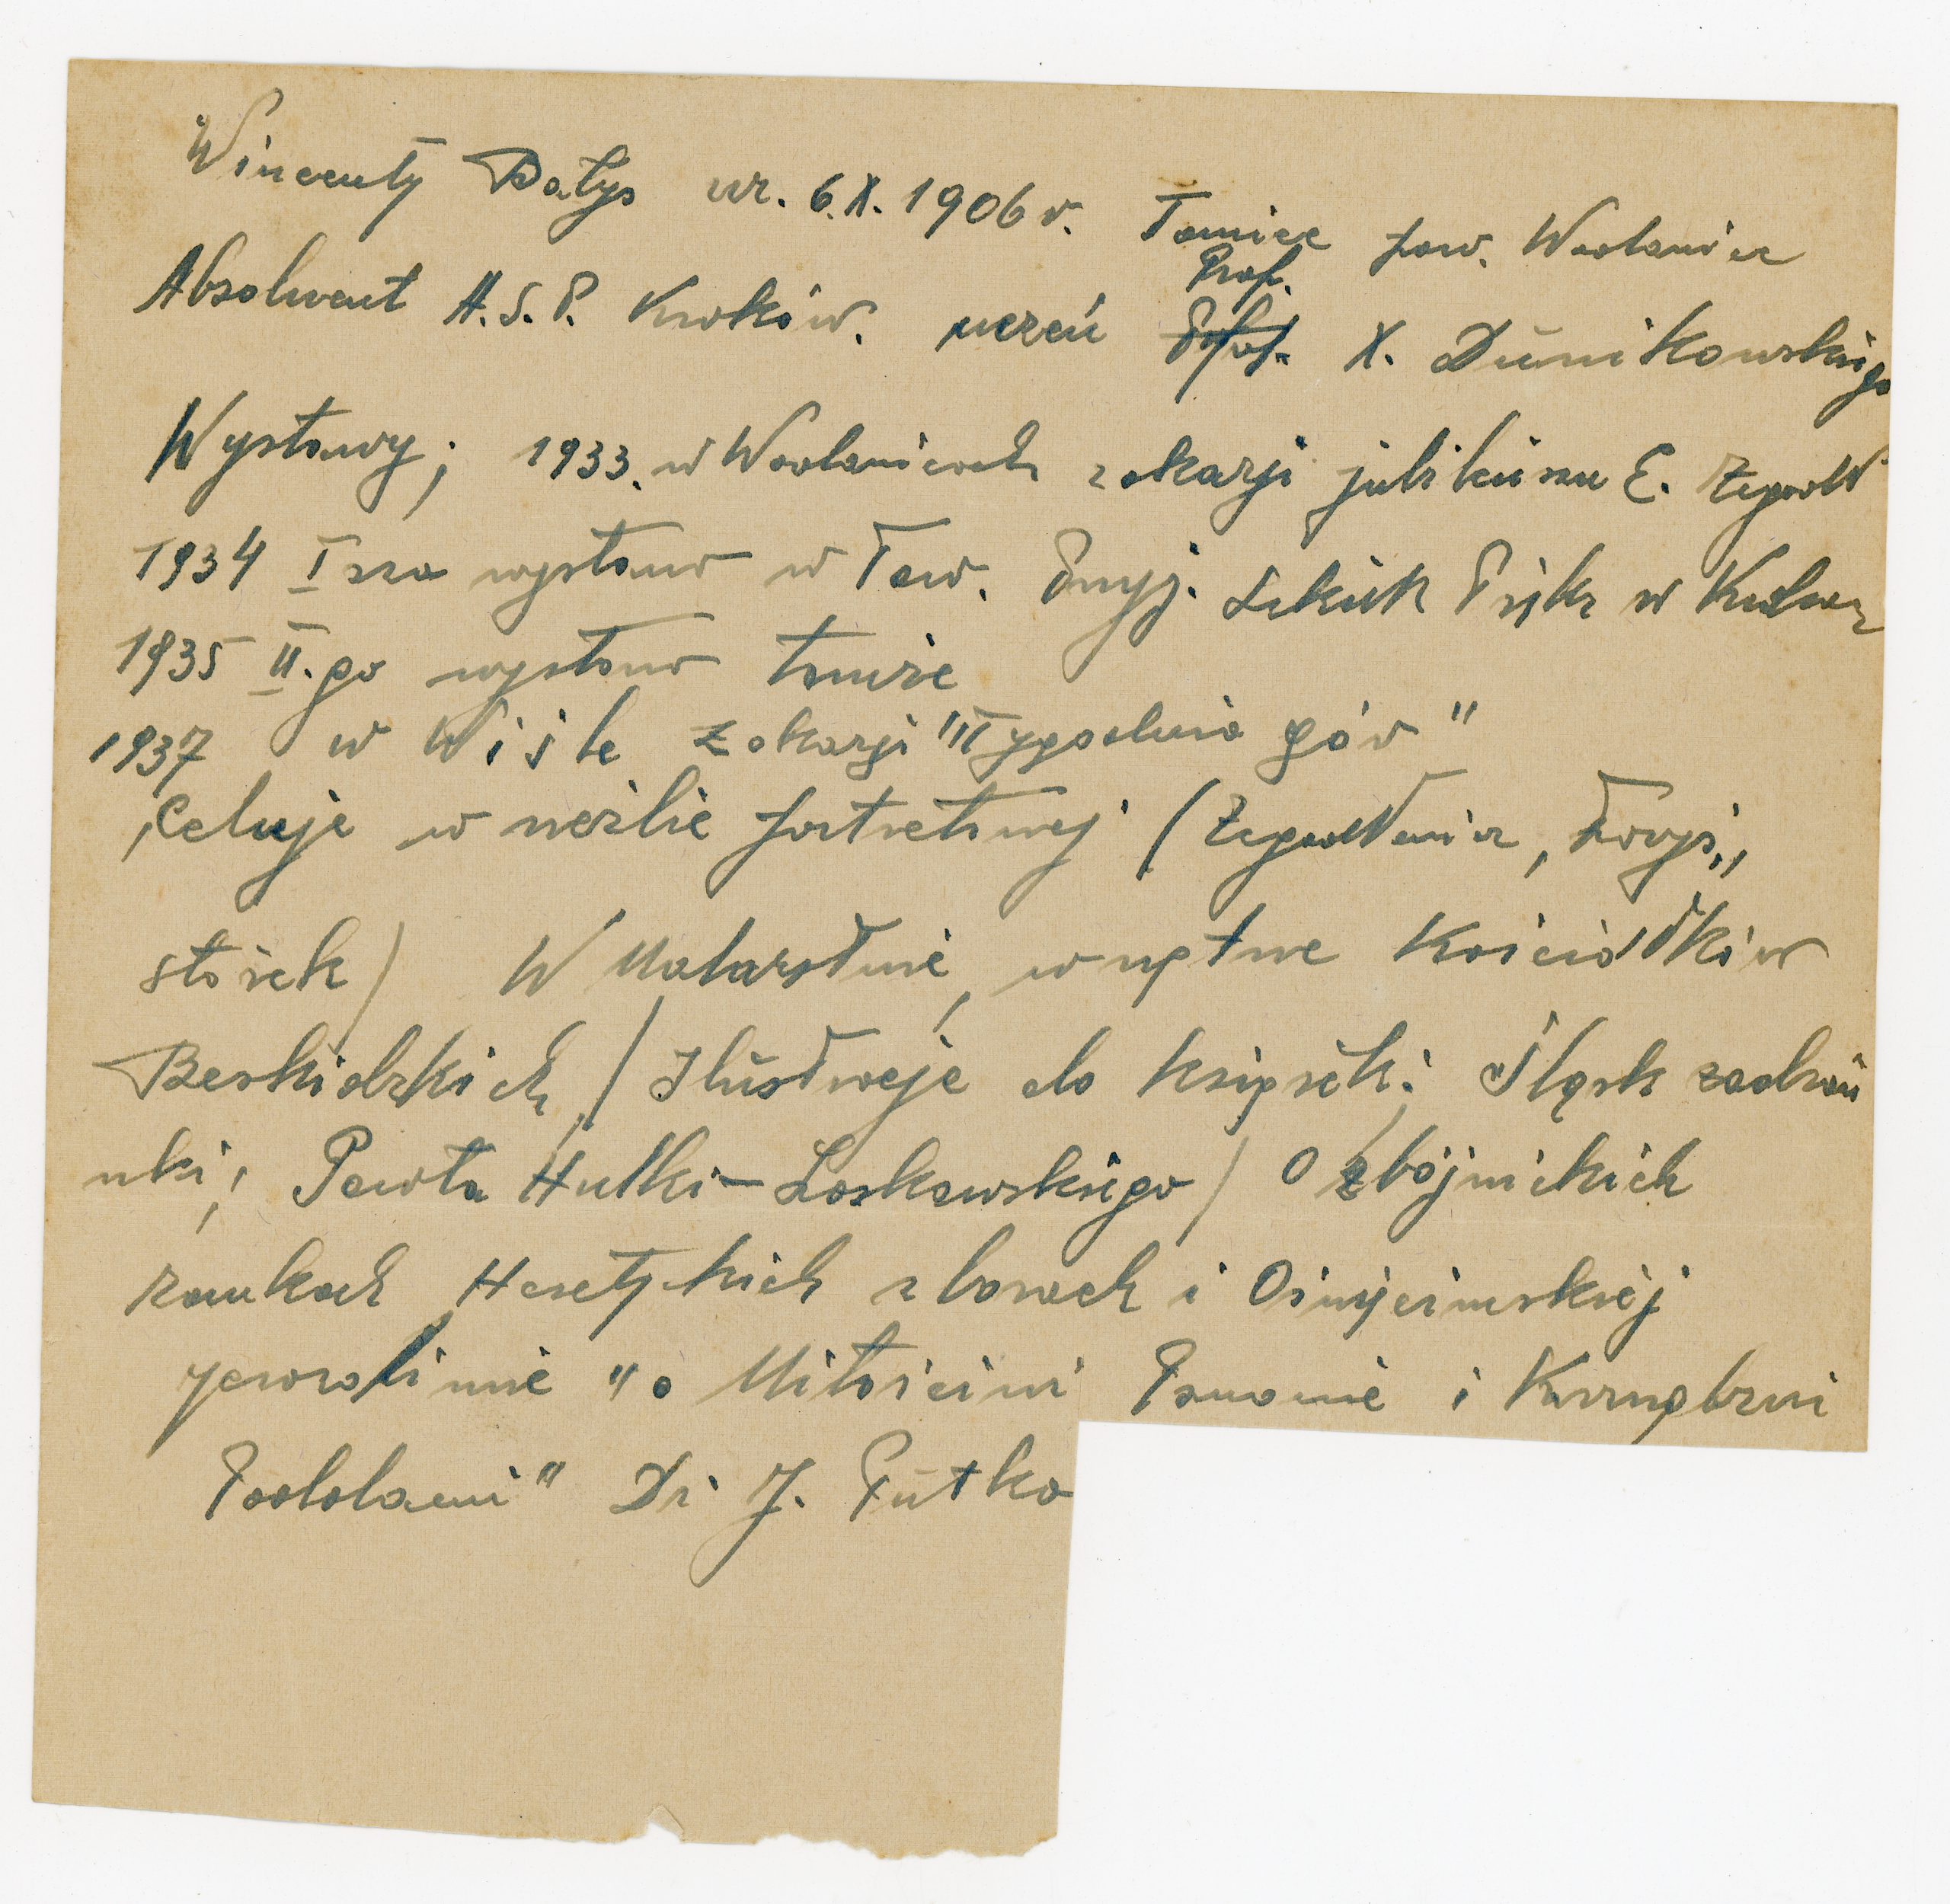 Wincenty Bałys ur. 6.X.1906 r. Tomice pow. Wadowice
Prof.
Absolwent A.S.P. Kraków. uczeń X. Dunikowskiego
Wystawy; 1933. w Wadowicach z okazji jubileuszu E. Zegadł
1934 I sza wystawa w Tow. Przyj. Sztuk Pięk w Krakow
1935 II.ga wystawa tamże
1937 w Wiśle z okazji "Tygodnia gór"
Celuje w rzeźbie portretowej (Zegadłowicz,
W Malarstwie, wnętrze Kościołków
Beskidzkich / Ilustracje do książek; Śląsk zaolzań
ski; Pawła Hulki-Laskowskiego / O zbójnickich
zamkach Heretyckich zborach i Oświęcimskiej
Jerozolimie "o Miłościwi Panowie i Krnąbrni
Poddani" Dr J. Putka